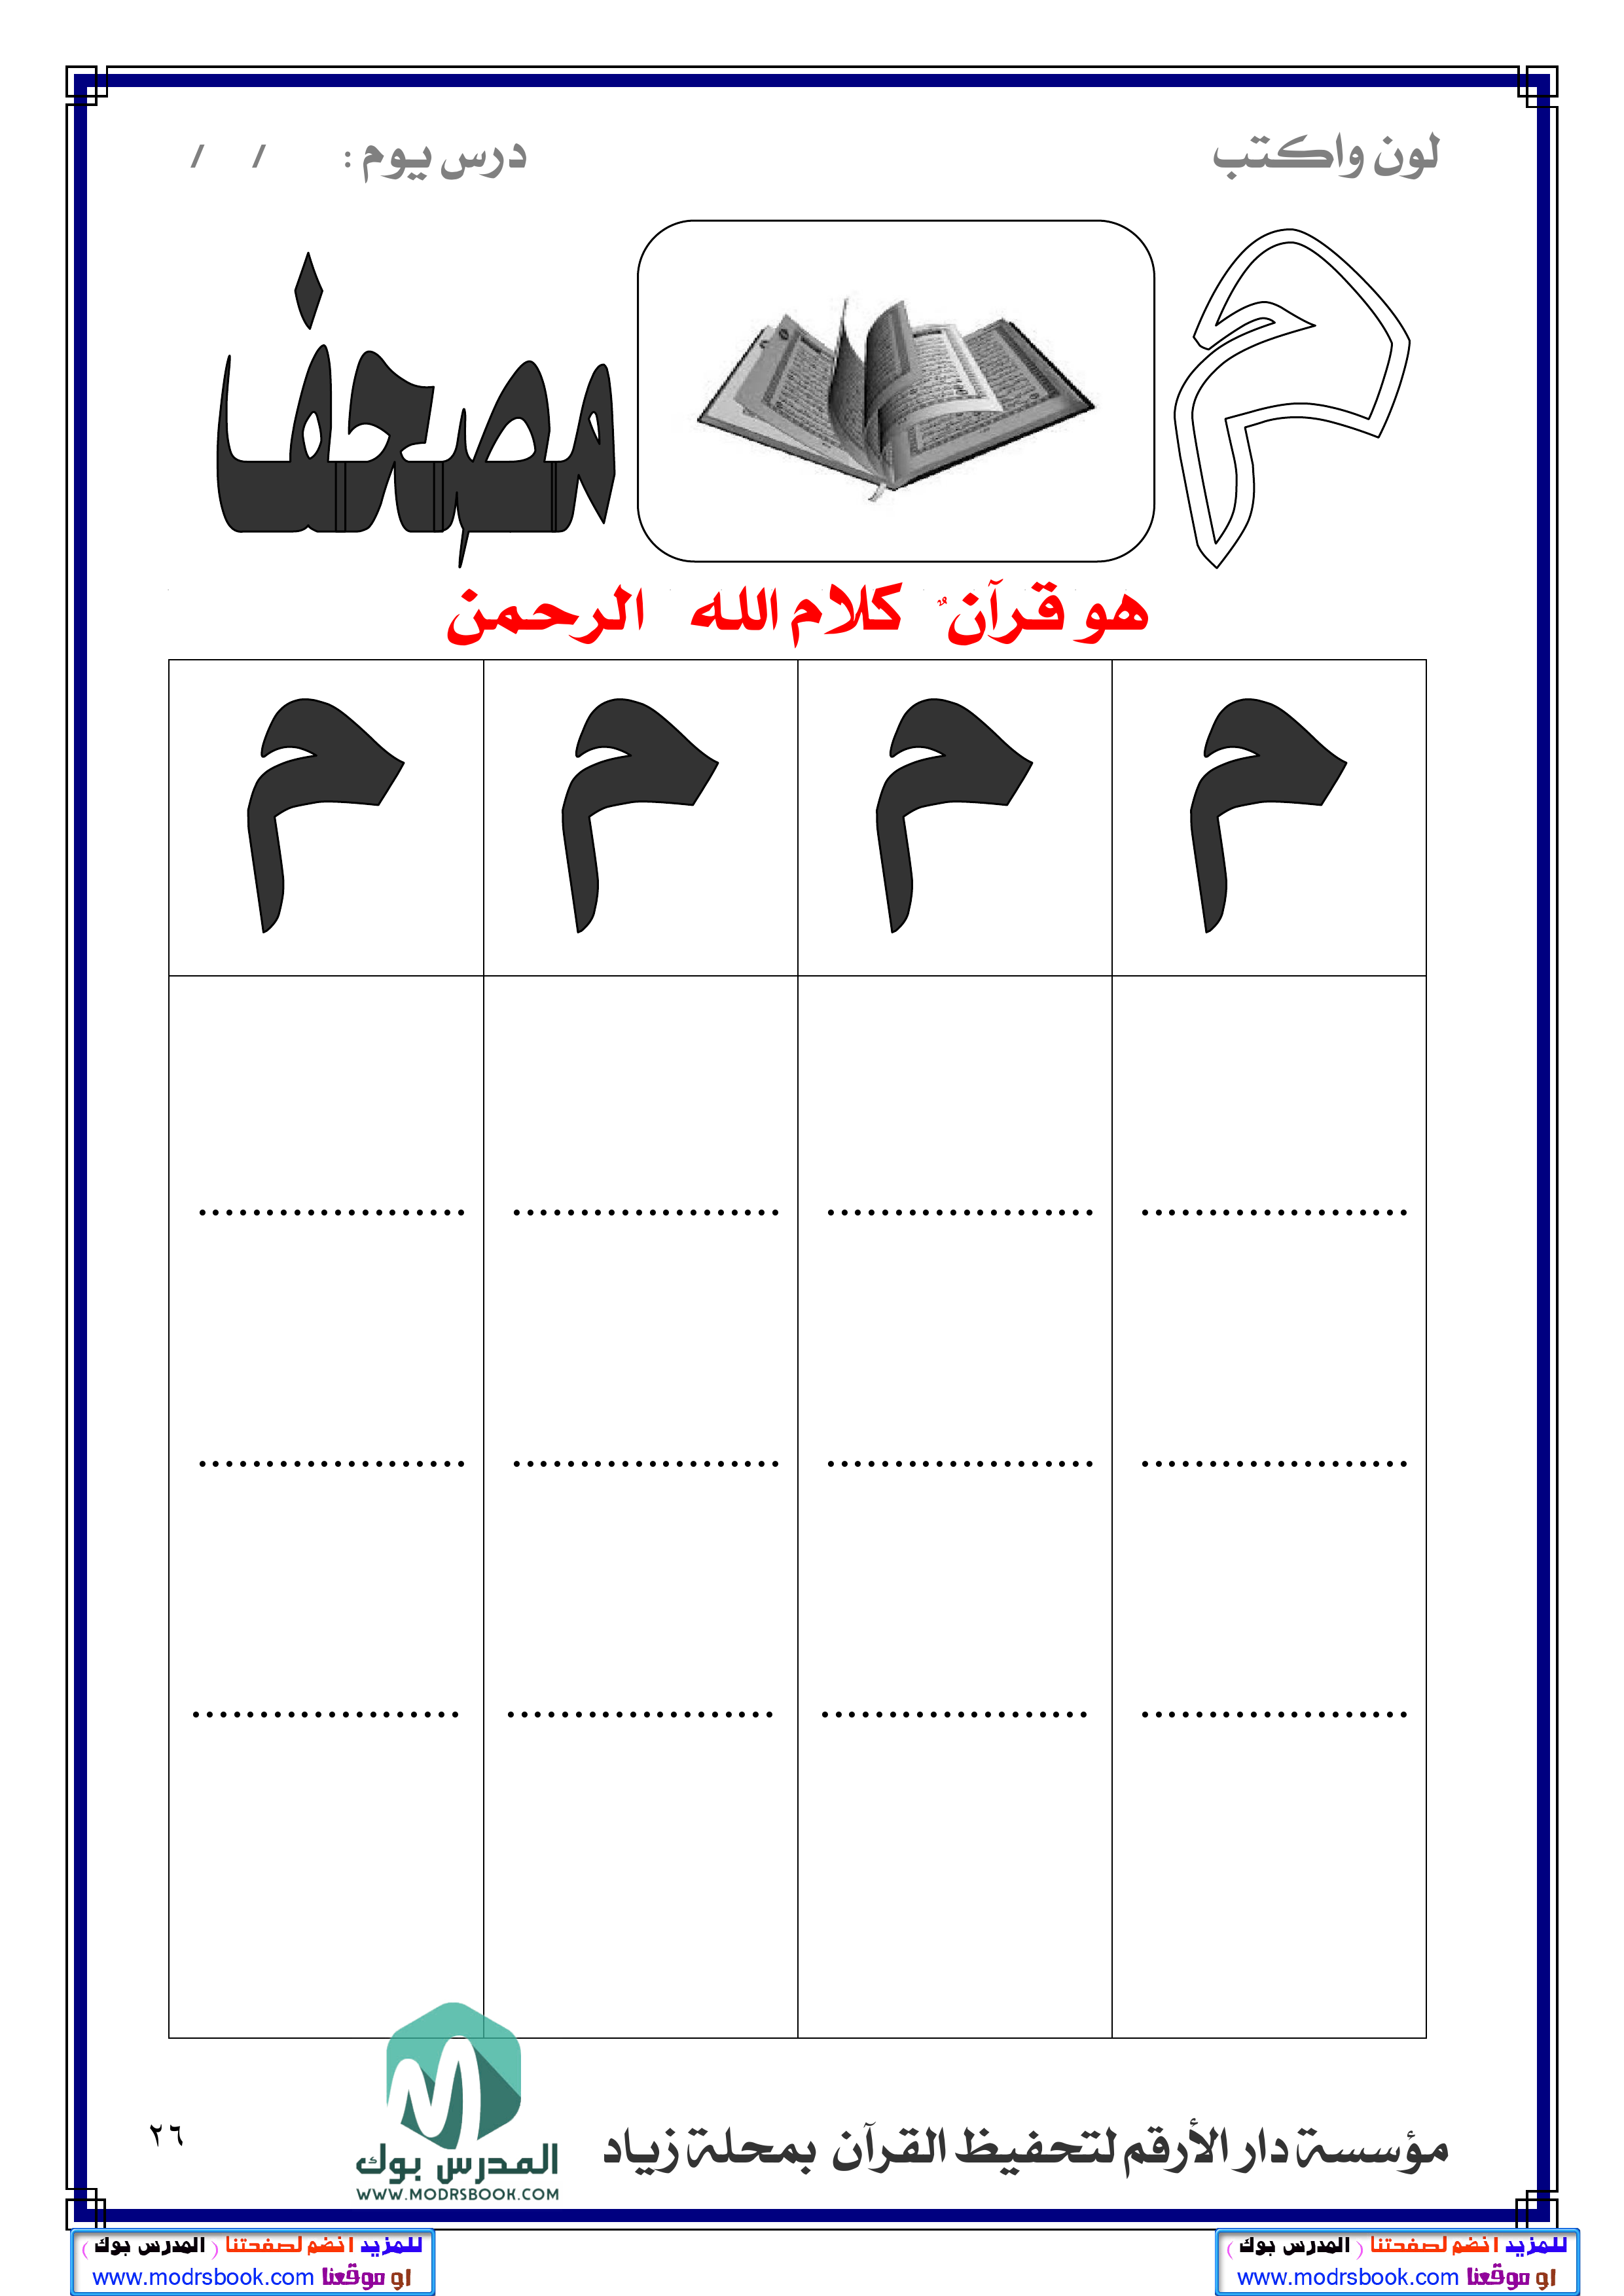 لون واكتب
درس يوم : / /
م
مصحف
هو قرآنٌ كلام الله الرحمن
م م م م
....................  ....................  ....................  ....................
....................  ....................  ....................  ....................
....................  ....................  ....................  ....................
مؤسسة دار الأرقم لتحفيظ القرآن بمحلة زياد
٢٦
المدرس بوك
WWW.MODRSBOOK.COM
للمزيد انضم لصفحتنا ( المدرس بوك )
او موقعنا www.modrsbook.com
للمزيد انضم لصفحتنا ( المدرس بوك )
او موقعنا www.modrsbook.com